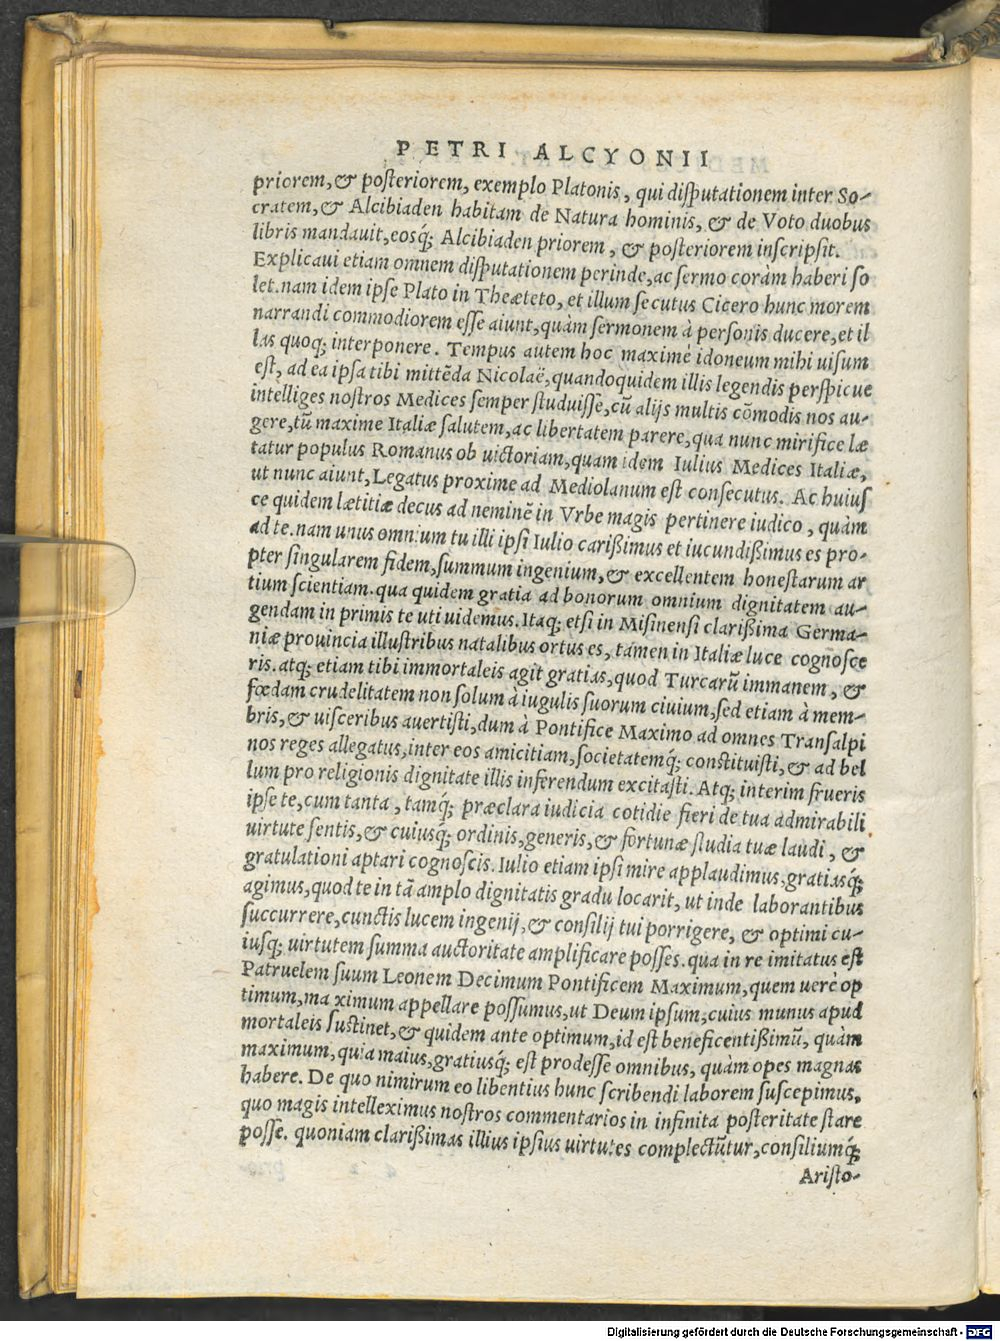 PETRI ALCYONII
priorem, & posteriorem, exemplo Platonis, qui disputationem inter So-
cratem, & Alcibiaden habitam de Natura hominis, & de Voto duobus
libris mandauit, eosq́; Alcibiaden priorem, & posteriorem inscripsit.
Explicaui etiam omnem disputationem perinde, ac sermo coràm haberi so
let. nam idem ipse Plato in Theæteto, et illum secutus Cicero hunc morem
narrandi commodiorem esse aiunt, quàm sermonem à personis ducere, et il
las quoq; interponere. Tempus autem hoc maximè idoneum mihi uisum
est, ad ea ipsa tibi mittẽda Nicolaë, quandoquidem illis legendis perspicue
intelliges nostros Medices semper studuisse, cũ alijs multis cõmodis nos au-
gere, tũ maxime Italiæ salutem, ac libertatem parere, qua nunc mirifice læ
tatur populus Romanus ob uictoriam, quam idem Iulius Medices Italiæ,
ut nunc aiunt, Legatus proxime ad Mediolanum est consecutus. Ac huius
ce quidem lætitiæ decus ad neminẽ in Vrbe magis pertinere iudico, quàm
ad te. nam unus omnium tu illi ipsi Iulio carißimus et iucundißimus es pro-
pter singularem fidem, summum ingenium, & excellentem honestarum ar
tium scientiam. qua quidem gratia ad bonorum omnium dignitatem au-
gendam in primis te uti uidemus. Itaq; etsi in Misinensi clarißima Germa-
niæ prouincia illustribus natalibus ortus es, tamen in Italiæ luce cognosce
ris. atq; etiam tibi immortaleis agit gratias, quod Turcarũ immanem, &
fœdam crudelitatem non solum à iugulis suorum ciuium, sed etiam à mem-
bris, & uisceribus auertisti, dum à Pontifice Maximo ad omnes Transalpi
nos reges allegatus, inter eos amicitiam, societatemq́; constituisti, & ad bel
lum pro religionis dignitate illis inferendum excitasti. Atq; interim frueris
ipse te, cum tanta, tamq́; præclara iudicia cotidie fieri de tua admirabili
uirtute sentis, & cuiusq́; ordinis, generis, & fortunæ studia tuæ laudi, &
gratulationi aptari cognoscis. Iulio etiam ipsi mire applaudimus, gratiasq́;
agimus, quod te in tã amplo dignitatis gradu locarit, ut inde laborantibus
succurrere, cunctis lucem ingenij, & consilij tui porrigere, & optimi cu-
iusq; uirtutem summa auctoritate amplificare posses. qua in re imitatus est
Patruelem suum Leonem Decimum Pontificem Maximum, quem uerè op
timum, maximum appellare possumus, ut Deum ipsum, cuius munus apud
mortaleis sustinet, & quidem ante optimum, id est beneficentißimũ, quàm
maximum, quia maius, gratiusq́; est prodesse omnibus, quàm opes magnas
habere. De quo nimirum eo libentius hunc scribendi laborem suscepimus,
quo magis intelleximus nostros commentarios in infinita posteritate stare
posse. quoniam clarißimas illius ipsius uirtutes complectũtur, consiliumq́;
Aristo-
Digitalisierung gefördert durch die Deutsche Forschungsgemeinschaft - DFG